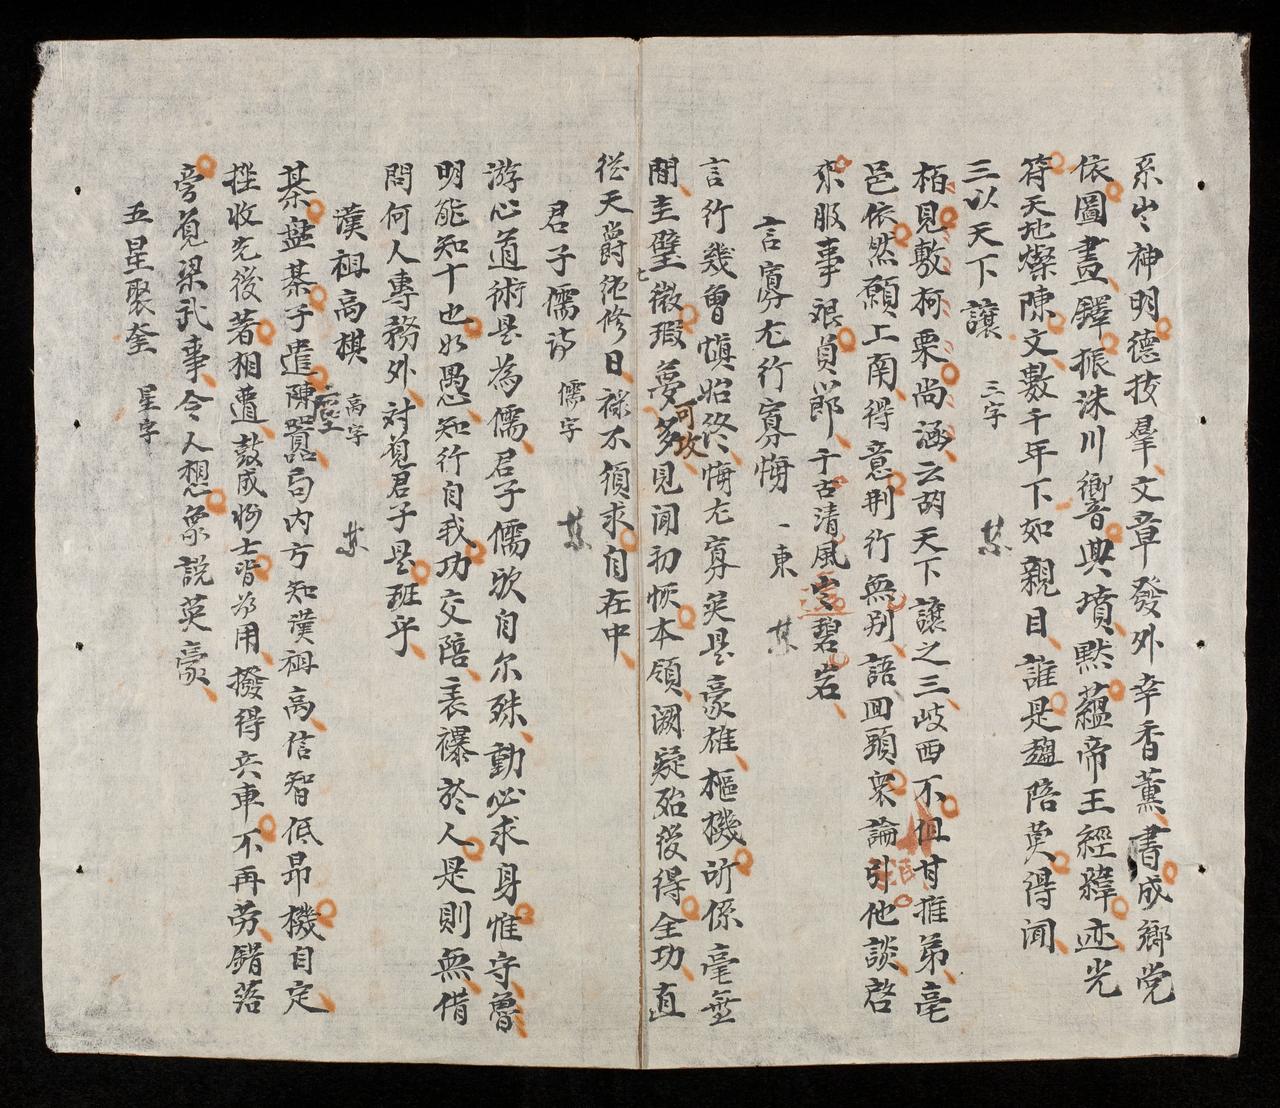 系出神明德拔羣文章發外幸香薰書成鄉党
依圖畫鐸振洙川響典墳黙蘊帝王經緯迹光
符天地燦陳文數千年下如親目誰是趨陪莫得聞
三以天下讓 三字 某
栢見敷柯栗尚涵云胡天下讓之三岐西不但甘推弟亳
邑依然願上南得意荆行無别語回頭衆論引他談啓
來服事艰負郎千古清風宕碧岩
言寡尤行寡悔 一東 某
言行幾曾慎始终悔尤寡矣是豪雄樞機所係毫無
間圭璧微瑕可攻多見聞初恢本領闕疑殆後得全功直
從天爵修日禄不須求自在中
君子儒詩 儒字 某
游心道術是為儒君子儒欤自尔殊動必求身惟守魯
明能知十也如愚知行自我功交陪表襮於人是則無借
問何人專務外対覓君子是班乎
漢祖高棋 高字 某
棊盘棊子遣陳嚣局内方知漢祖高信智低昂機自定
挫收先後著相遭鼓成将士皆为用撥得兵車不再劳錯落
旁覓梁武事令人想象説英豪
五星聚奎 星字